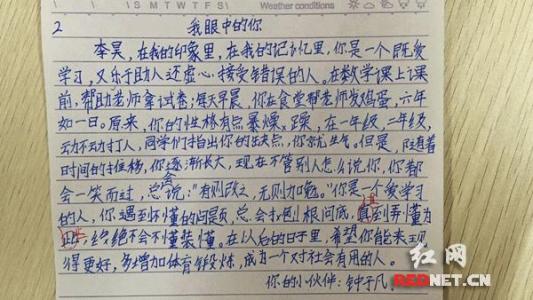 S M T W T F S Weather conditions
2 我眼中的你
李昊，在我的印象里，在我的记忆里，你是一个既爱
学习，又乐于助人还虚心接受错误的人。在数学课上课
前，帮助老师拿试卷；每天早晨，你在食堂帮老师发鸡蛋，六年
如一日。原来，你的性格有点暴燥躁，在一年级，二年级，
动不动打人，同学们指出你的缺点，你就生气。但是，随着
时间的推移，你逐渐长大，现在不管别人怎么说你，你都
会一笑而过，总会说："有则改之，无则加勉。"你是一个爱学习
的人，你遇到不懂的问题，总会打刨根问底，直到弄懂为
止，绝不会不懂装懂。在以后的日子里，希望你能表现
得更好，多增加体育锻炼，成为一个对社会有用的人。
你的小伙伴：钟子凡
红网
REDNET.CN